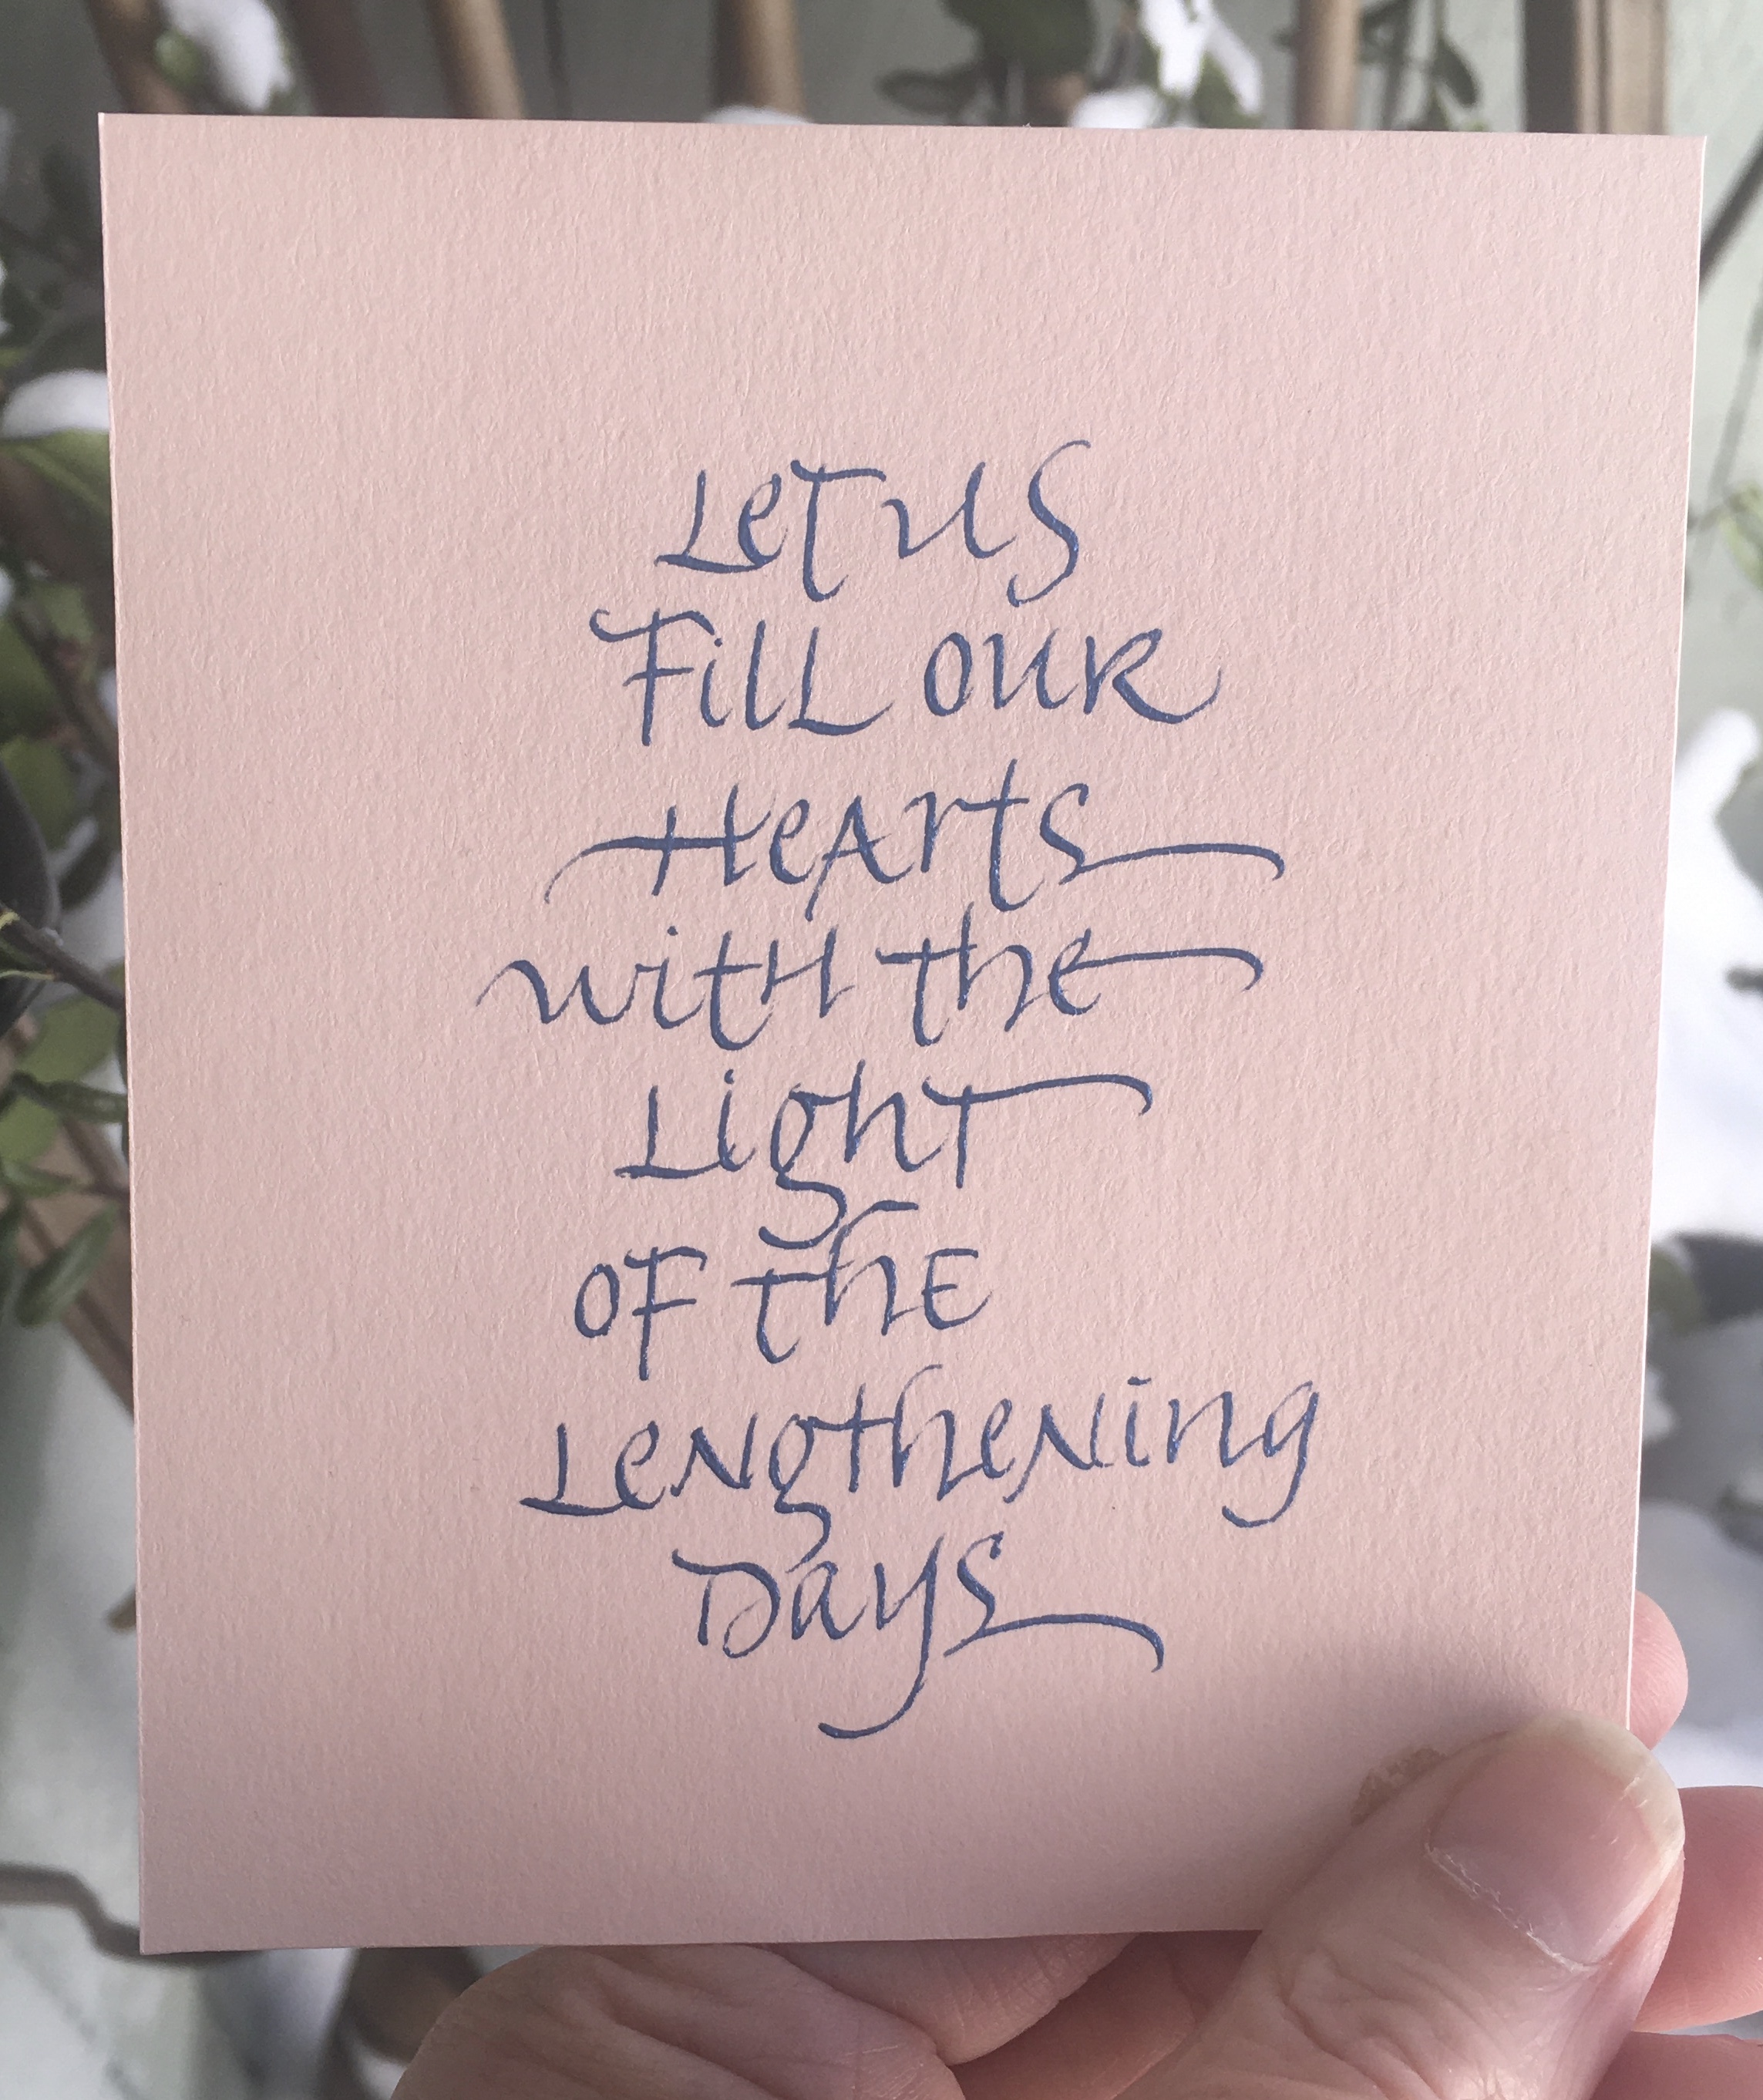 Let us
Fill our
Hearts
with the
Light
of the
Lengthening
Days